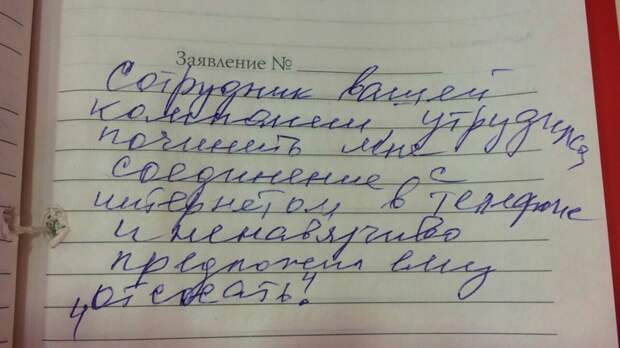 Заявление №
Сотрудник вашей
компании утрудился
починить мне
соединение с
интернетом в телефоне
и ненавязчиво
предложил ему
"отсосать".